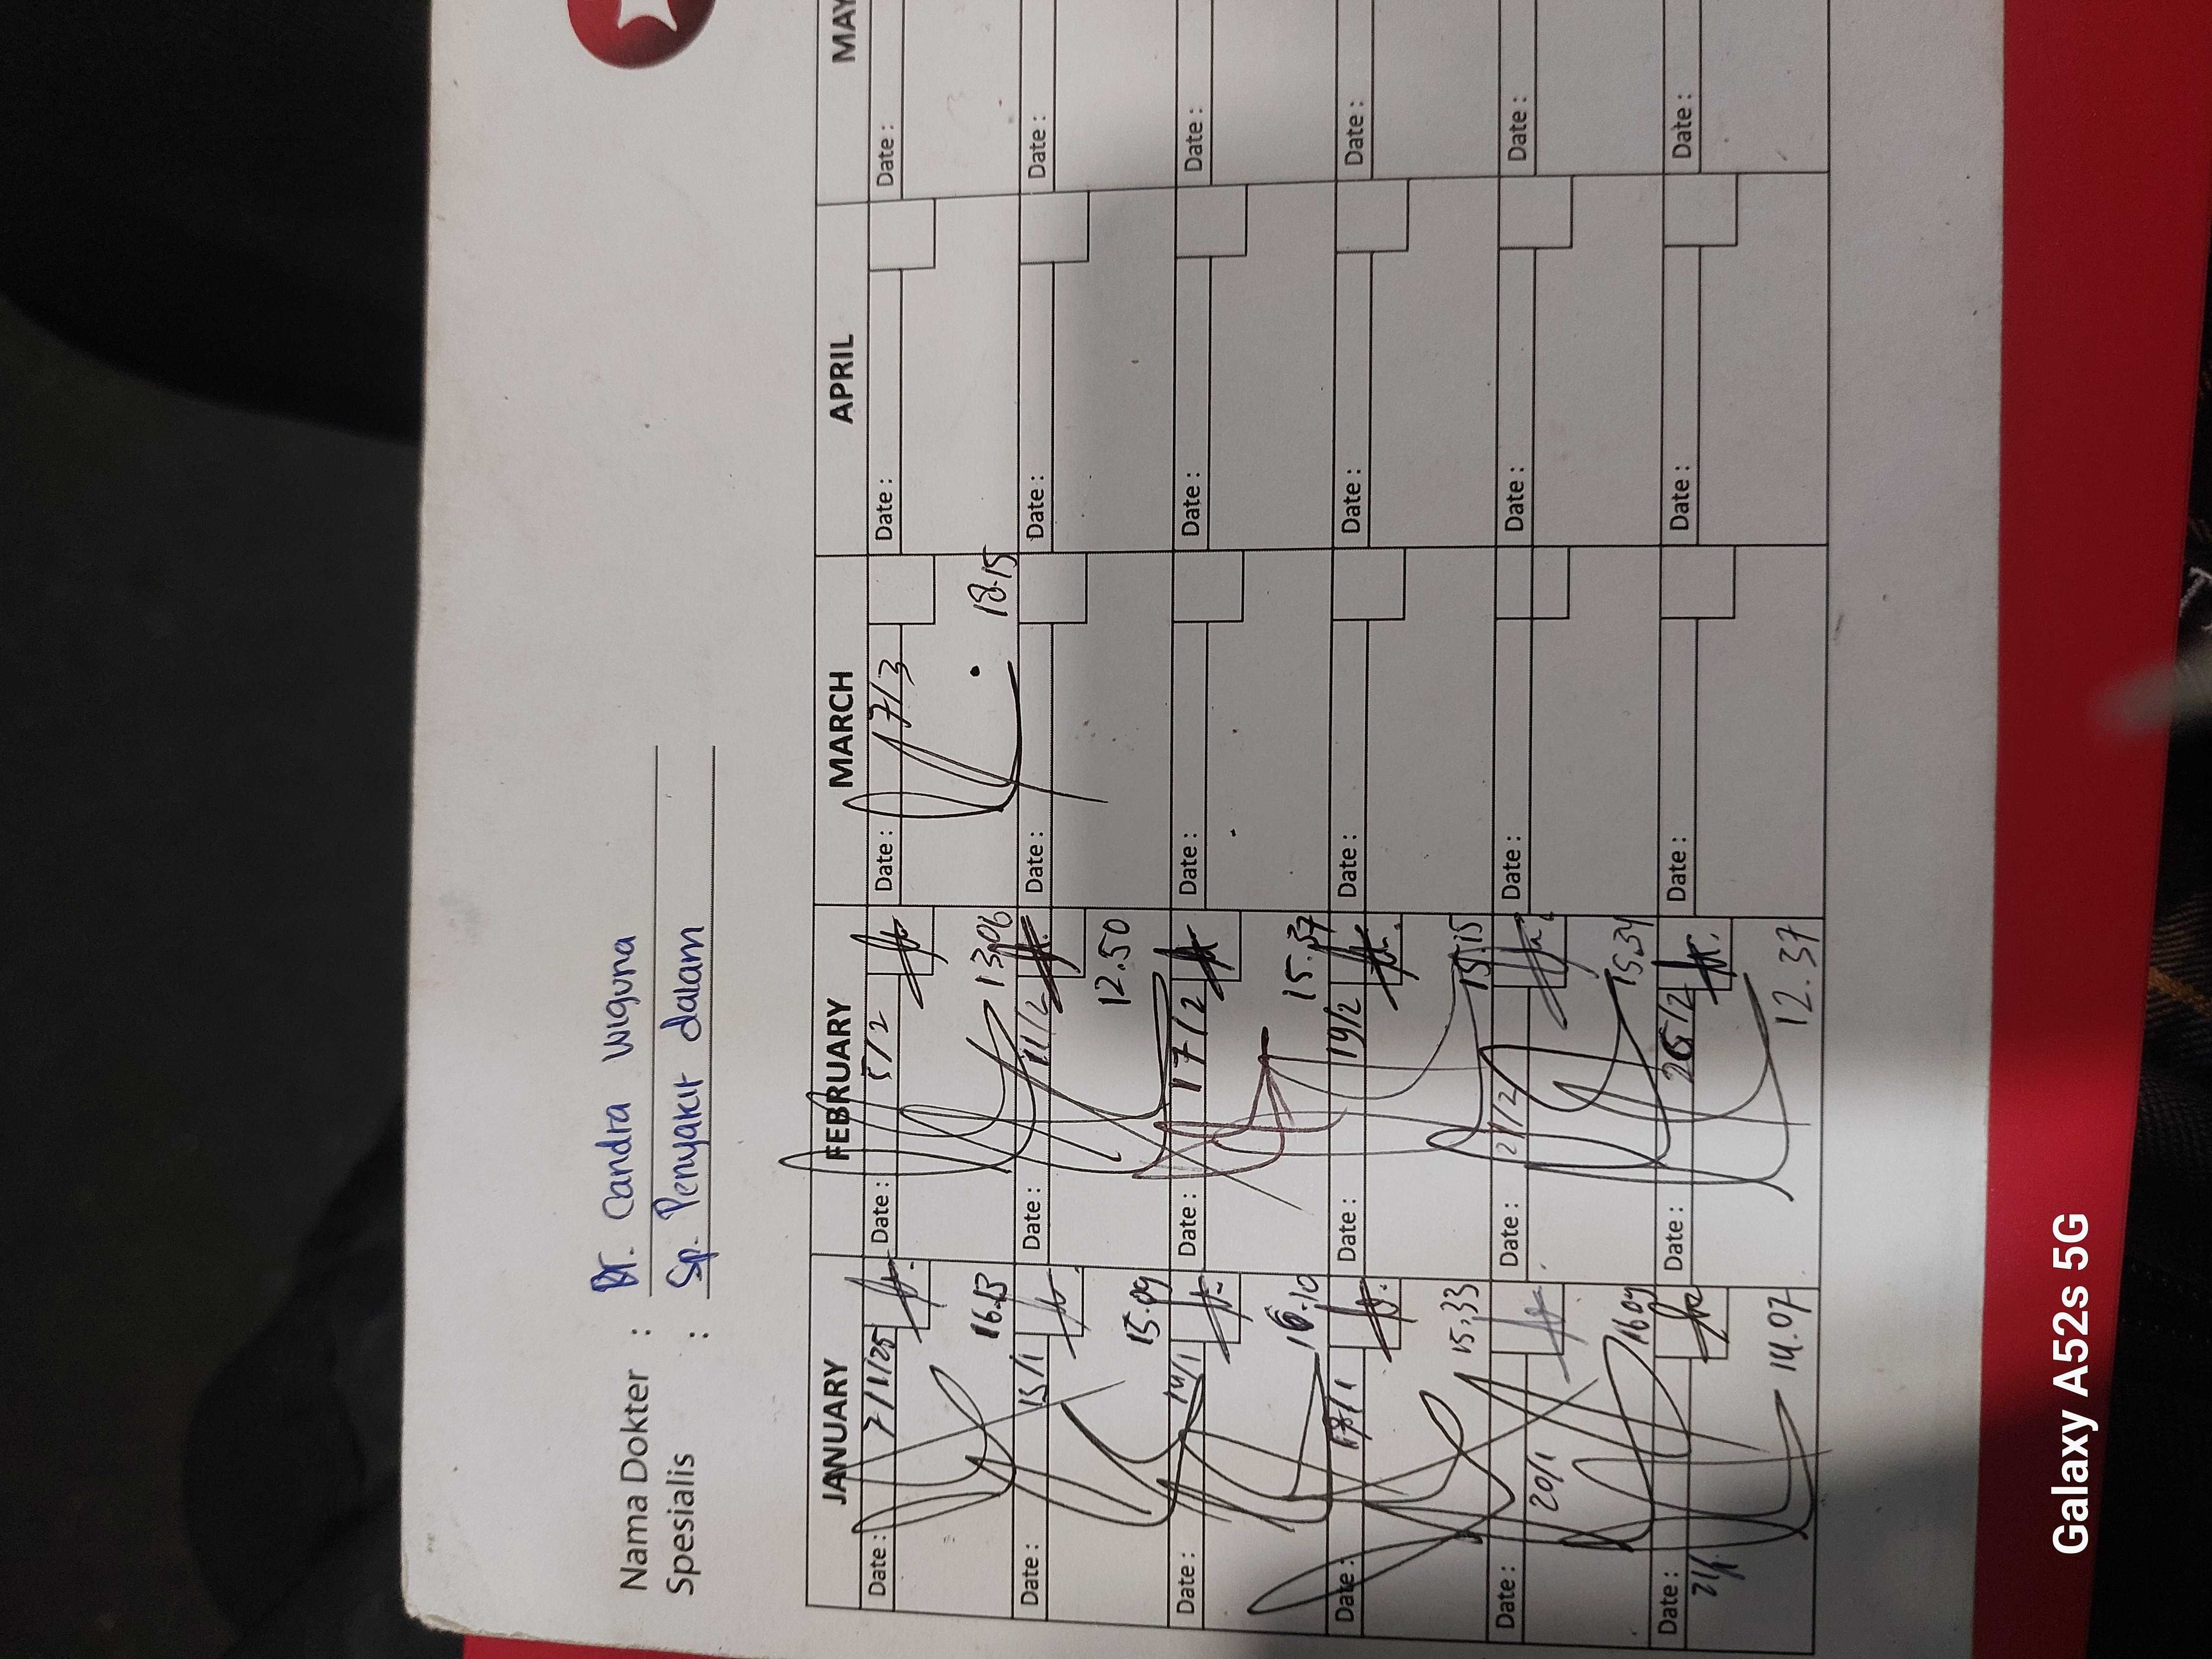 Nama Dokter : Dr. Candra Wiguna
Spesialis : Sp. Penyakit dalam
JANUARY FEBRUARY MARCH APRIL MAY
Date : 7/1/25 Date : 5/2 Date : 7/3 Date : Date :
16.13 13.06 18.15
Date : 13/1 Date : 11/2 Date : Date : Date :
15.09 12.50
Date : 14/1 Date : 17/2 Date : Date : Date :
16.10 15.37
Date : Date : 19/2 Date : Date : Date :
15.33 15.15
Date : 20/1 Date : 21/2 Date : Date : Date :
16.09 15.34
Date : Date : Date : Date : Date :
14.07 12.37
Galaxy A52s 5G